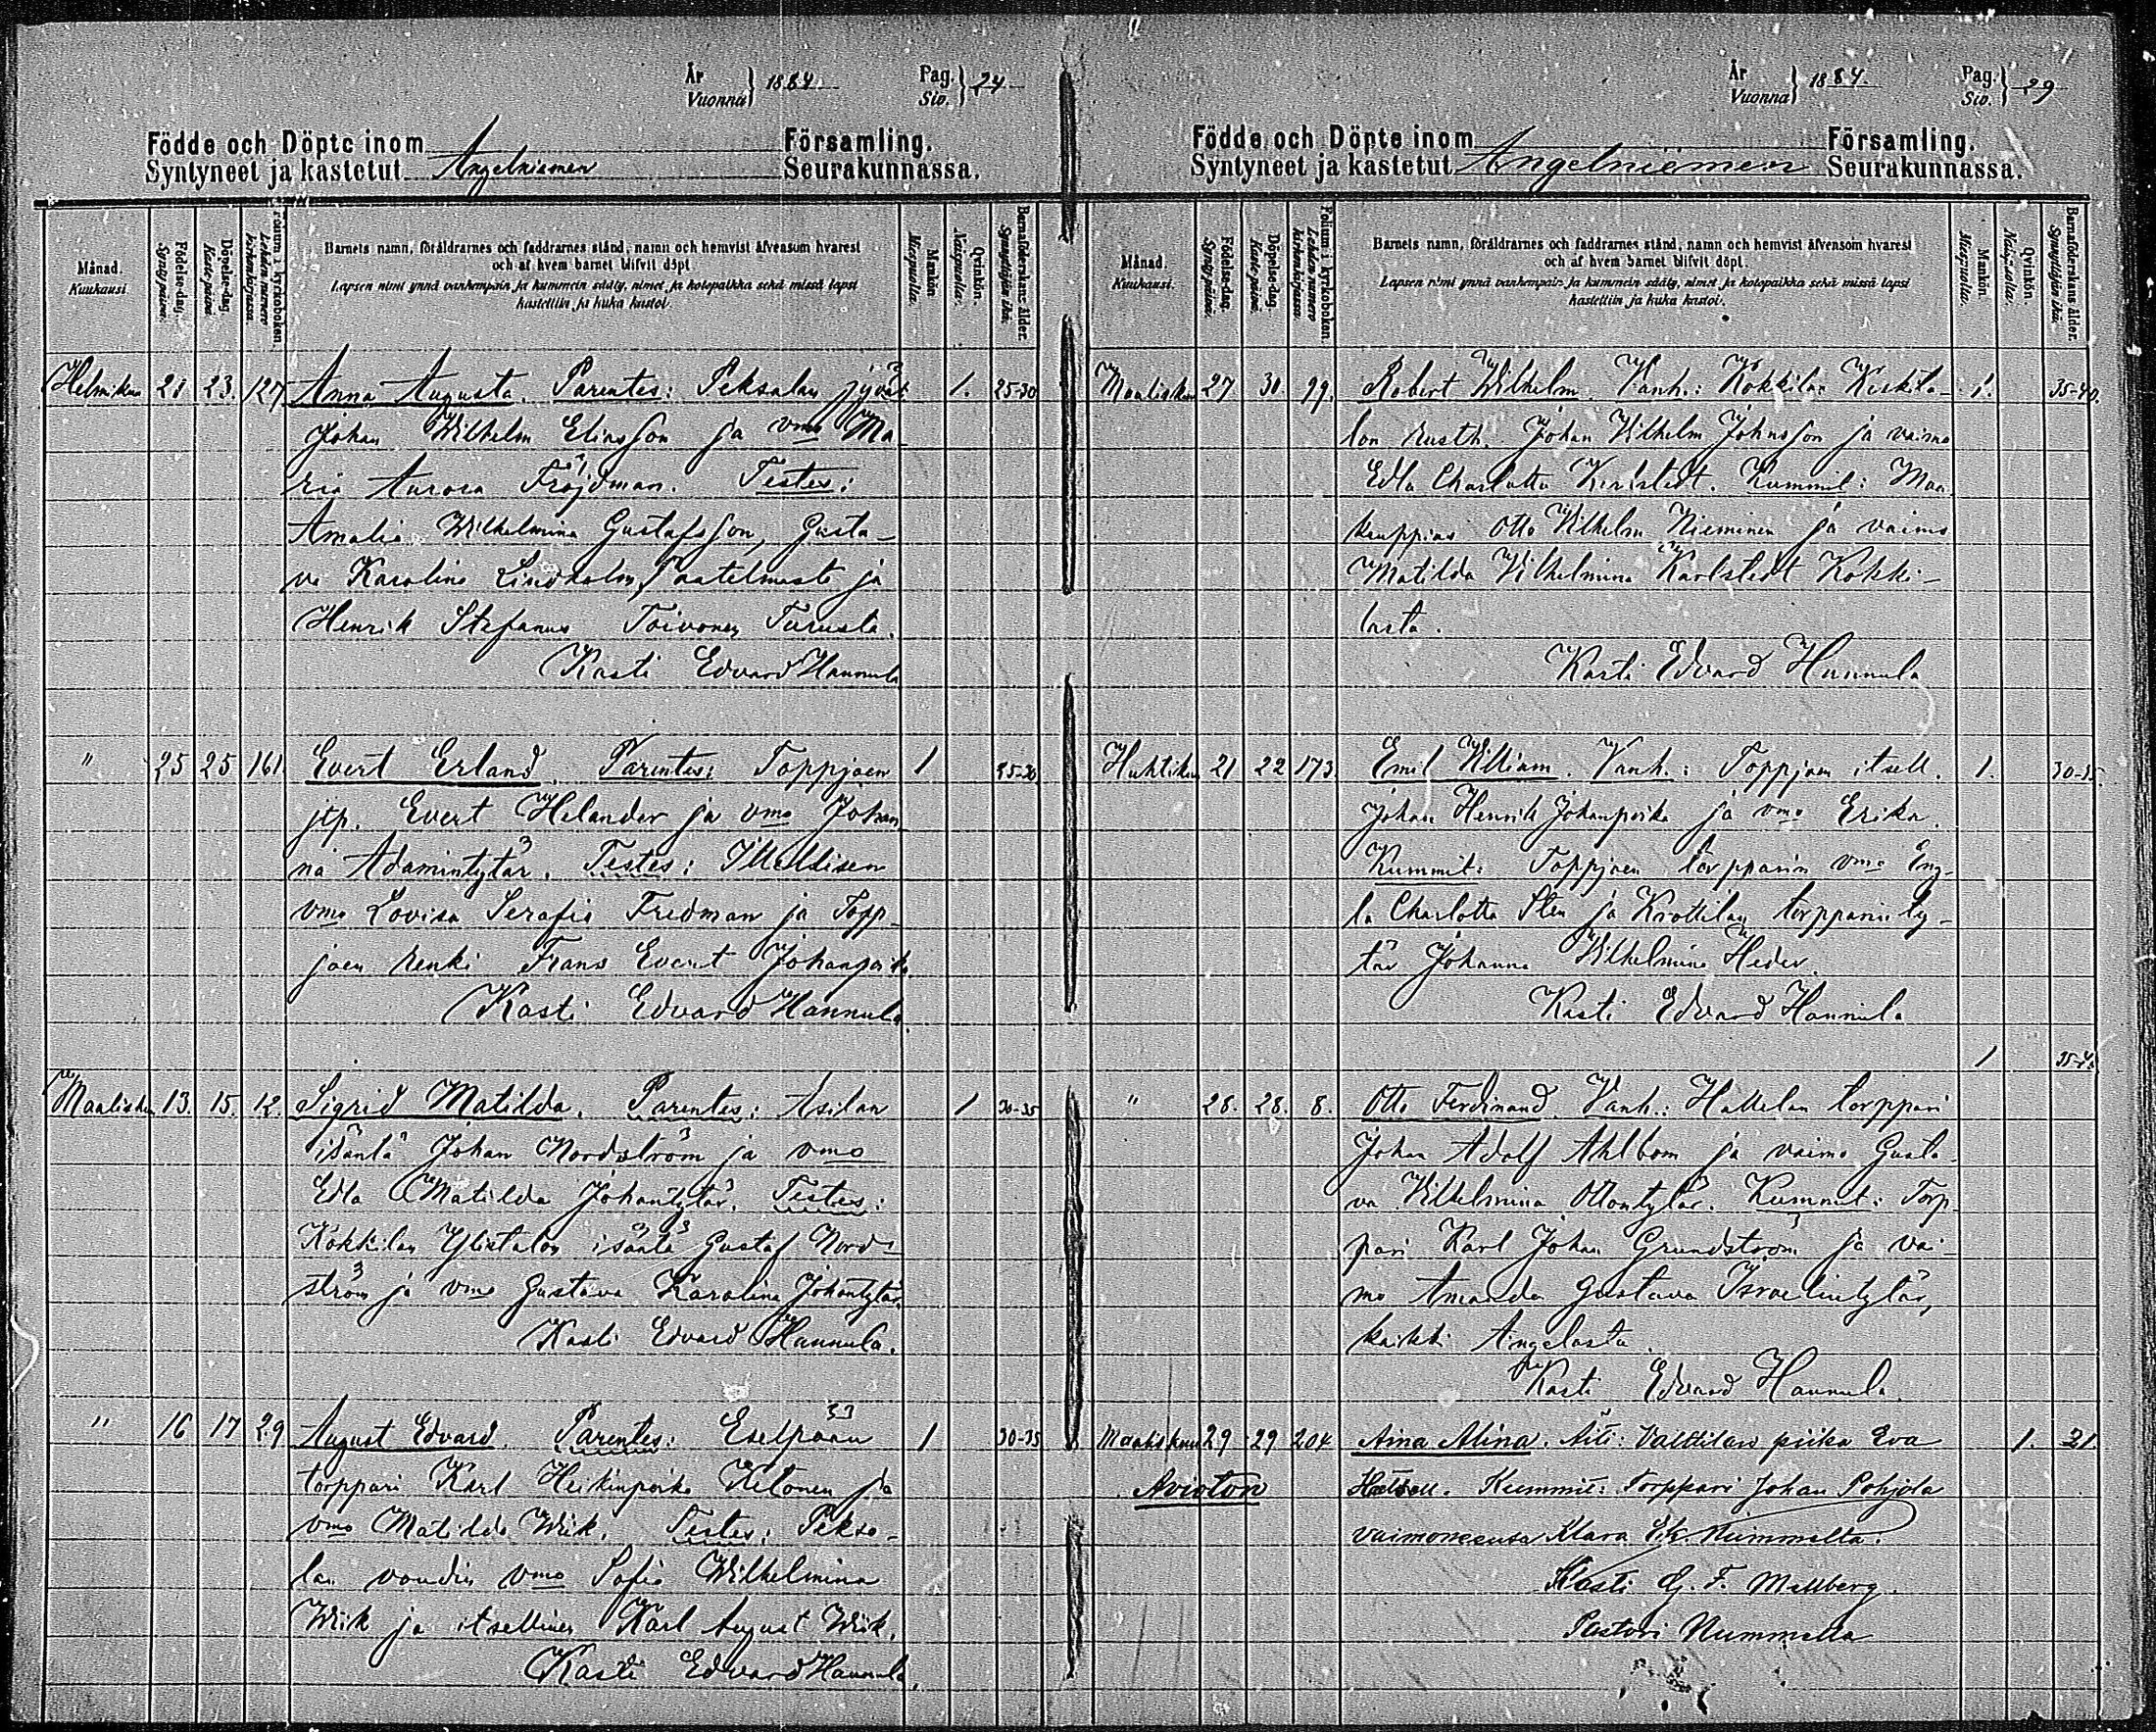 År
Vuonna } 1884
Pag.
Siv. } 24
Födde och Döpte inom Församling.
Syntyneet ja kastetut Angelniemen Seurakunnassa.
Månad.
Kuukausi.
Födelse-dag.
Syntypäivä.
Döpelse-dag.
Kastepäivä.
Folium i kyrkoboken.
Lehden numero kirkonkirjassa.
Barnets namn, föräldrarnes och faddrarnes stånd, namn och hemvist äfvensom hvarest
och af hvem barnet blifvit döpt
Lapsen nimi ynnä vanhempain ja kummein sääty, nimet ja kotopaikka sekä missä lapsi
kastettiin ja kuka kastoi.
Mankön
Miespuolia.
Qvinkön.
Naispuolia.
Barnaföderskans ålder.
Synnyttäjän ikä.
Helmikuu 21 23. 127 Anna Augusta. Parentes: Peksalan 1. 25-30
Johan Wilhelm Eliasson ja vmo Ma-
ria Aurora Fröjdman. Testes:
Amalia Wilhelmina Gustafsson, Gusta-
va Karolina Lindholm, ja
Henrik Stefanus Toivonen Turusta.
Kasti Edvard Hannula
" 25 25 161 Evert Erland. Parentes: Toppjoen 1 25-30
jtp. Evert Helander ja vmo Johan-
na Adamintytär. Testes:
vmo Lovisa Serafia Fredman ja Topp-
joen renki Frans Evert Johanpoika
Kasti Edvard Hannula.
Maalisku 13. 15. 12. Sigrid Matilda. Parentes: Asilan 1 30-35
isäntä Johan Nordström ja vmo
Edla Matilda Johantytär. Testes:
Kokkilan Ylistalon isäntä Gustaf Nord-
ström ja vmo Gustava Karolina Johantytär.
Kasti Edvard Hannula.
" 16 17 29 August Edvard. Parentes: 1 30-35
torppari Karl Heikinpoika Ketonen ja
vmo Matilda Wiik. Testes: Peksa-
lan voudin vmo Sofia Wilhelmina
Wiik ja itsellinen Karl August Wiik.
Kasti Edvard Hannula.
År
Vuonna } 1884.
Pag.
Siv. } 29
Födde och Döpte inom Församling.
Syntyneet ja kastetut Angelniemen Seurakunnassa.
Månad.
Kuukausi.
Födelse-dag.
Syntypäivä.
Döpelse-dag.
Kastepäivä.
Folium i kyrkoboken.
Lehden numero kirkonkirjassa.
Barnets namn, föräldrarnes och faddrarnes stånd, namn och hemvist äfvensom hvarest
och af hvem barnet blifvit döpt.
Lapsen nimi ynnä vanhempain ja kummein sääty, nimet ja kotopaikka sekä missä lapsi
kastettiin ja kuka kastoi.
Mankön.
Miespuolia.
Qvinkön.
Naispuolia.
Barnaföderskans ålder.
Synnyttäjän ikä.
Maalisku 27 30. 99. Robert Wilhelm. Vanh.: Kokkilan 1. 35-40.
lon rusth. Johan Vilhelm Johnsson ja vaimo
Edla Charlotta Karlstedt. Kummit: Maa-
kauppias Otto Vilhelm Nieminen ja vaimo
Matilda Vilhelmina Karlstedt Kokki-
lasta.
Kasti Edvard Hannula
Huhtikuu 21 22 173. Emil William. Vanh.: Toppjoen itsell. 1. 30-35
Johan Henrik Johanpoika ja vmo Erika.
Kummit: Toppjoen torpparin vmo Eng-
la Charlotta Sten ja Krottilan torpparin ty-
tär Johanna Wilhelmina Heder.
Kasti Edvard Hannula
1 35-40
" 28. 28. 8. Otto Ferdinand. Vanh.: torppari
Johan Adolf Ahlbom ja vaimo Gusta-
va Vilhelmina Ottontytär. Kummit: Torp-
pari Karl Johan Grundström ja vai-
mo Amanda Gustava Israelintytär,
kaikki Angelasta.
Kasti Edvard Hannula.
Maaliskuu 29 29 204 Aina Alina. Äiti: Valttilan piika Eva 1. 21
Avioton Kummit: Torppari Johan Pohjola
vaimonensa Klara Nummelta.
Kasti G. F. Mellberg.
Pastori Nummella